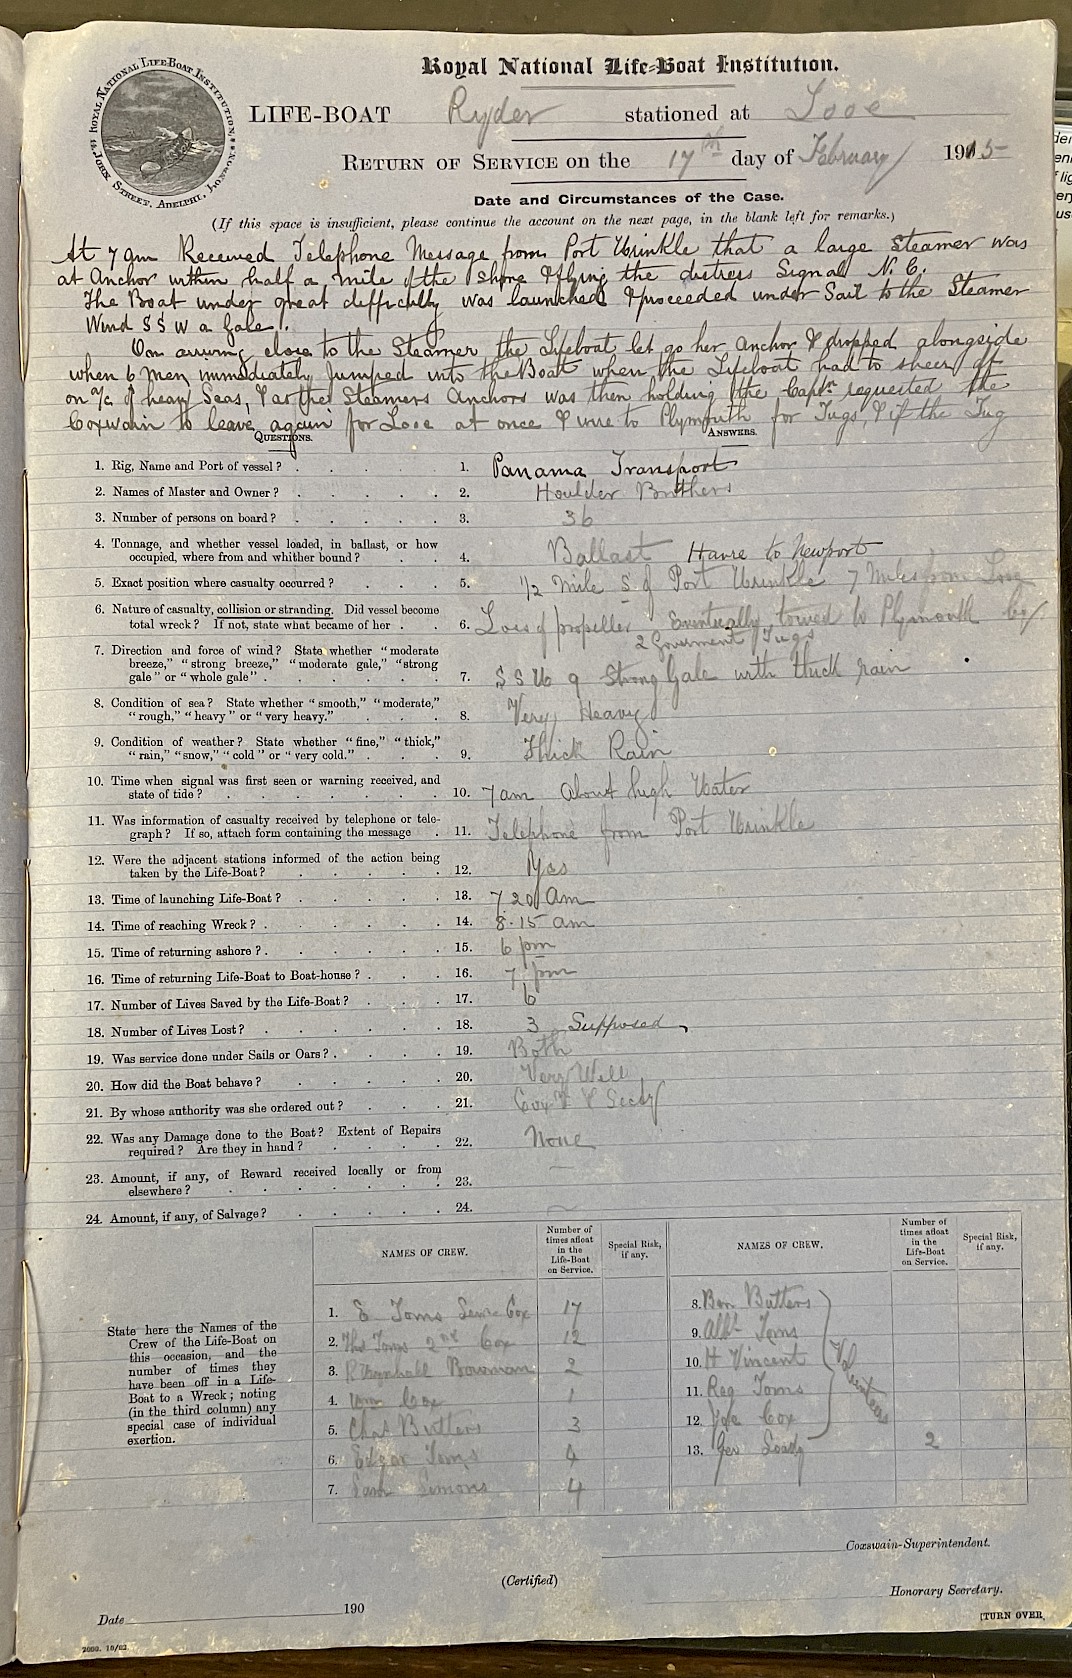 ROYAL NATIONAL LIFE-BOAT INSTITUTION, JOHN STREET, ADELPHI, LONDON.
Royal National Life-Boat Institution.
LIFE-BOAT Ryder stationed at Looe
RETURN OF SERVICE on the 17th day of February 1915
Date and Circumstances of the Case.
(If this space is insufficient, please continue the account on the next page, in the blank left for remarks.)
At 7 am Received Telephone Message from Port Wrinkle that a large Steamer was
at Anchor within half a mile of the Shore & flying the distress Signal N. C.
The Boat under great difficulty was launched & proceeded under Sail to the Steamer
Wind S S W a Gale.
On arriving close to the Steamer the Lifeboat let go her Anchor & dropped alongside
when 6 men immediately Jumped into the Boat when the Lifeboat had to sheer off
on a/c of heavy Seas, & as the Steamers Anchors was then holding the Captn requested the
Coxwain to leave again for Looe at once & wire to Plymouth for Tugs, & if the Tug
QUESTIONS. ANSWERS.
1. Rig, Name and Port of vessel? 1. Panama Transport
2. Names of Master and Owner? 2. Houlder Brothers
3. Number of persons on board? 3. 36
4. Tonnage, and whether vessel loaded, in ballast, or how
occupied, where from and whither bound? 4. Ballast Havre to Newport
5. Exact position where casualty occurred? 5. 1/2 mile S of Port Wrinkle 7 Miles from Looe
6. Nature of casualty, collision or stranding. Did vessel become
total wreck? If not, state what became of her . 6. Loss of propeller Eventually towed to Plymouth by
2 Goverment Tugs
7. Direction and force of wind? State whether "moderate
breeze," "strong breeze," "moderate gale," "strong
gale" or "whole gale" . 7. S S W 9 Strong Gale with thick rain
8. Condition of sea? State whether "smooth," "moderate,"
"rough," "heavy" or "very heavy." 8. Very Heavy
9. Condition of weather? State whether "fine," "thick,"
"rain," "snow," "cold" or "very cold." 9. Thick Rain
10. Time when signal was first seen or warning received, and
state of tide? 10. 7 am About high Water
11. Was information of casualty received by telephone or tele-
graph? If so, attach form containing the message . 11. Telephone from Port Wrinkle
12. Were the adjacent stations informed of the action being
taken by the Life-Boat? 12. Yes
13. Time of launching Life-Boat? 13. 7 20 Am
14. Time of reaching Wreck? 14. 8.15 am
15. Time of returning ashore? 15. 6 pm
16. Time of returning Life-Boat to Boat-house? 16. 7 pm
17. Number of Lives Saved by the Life-Boat? 17. 6
18. Number of Lives Lost? 18. 3 Supposed
19. Was service done under Sails or Oars? 19. Both
20. How did the Boat behave? 20. Very Well
21. By whose authority was she ordered out? 21. & Secty
22. Was any Damage done to the Boat? Extent of Repairs
required? Are they in hand? 22. None
23. Amount, if any, of Reward received locally or from
elsewhere? 23.
24. Amount, if any, of Salvage? 24.
NAMES OF CREW. Number of times afloat in the Life-Boat on Service. Special Risk, if any. NAMES OF CREW. Number of times afloat in the Life-Boat on Service. Special Risk, if any.
State here the Names of the
Crew of the Life-Boat on
this occasion, and the
number of times they
have been off in a Life-
Boat to a Wreck; noting
(in the third column) any
special case of individual
exertion.
1. E Toms Senr Cox 17
2. Thos Toms 2nd Cox 12
3. Bowman 2
4. Wm Cox 1
5. Chas Butters 3
6. Edgar Toms 4
7. Sam Simons 4
8. Ben Butters
9. Albt Toms
10. H Vincent
11. Reg Toms
12. Cox
13. Geo 2
Volunteers
Coxswain-Superintendent.
(Certified)
Honorary Secretary.
Date 190
[TURN OVER.
2000. 10/02